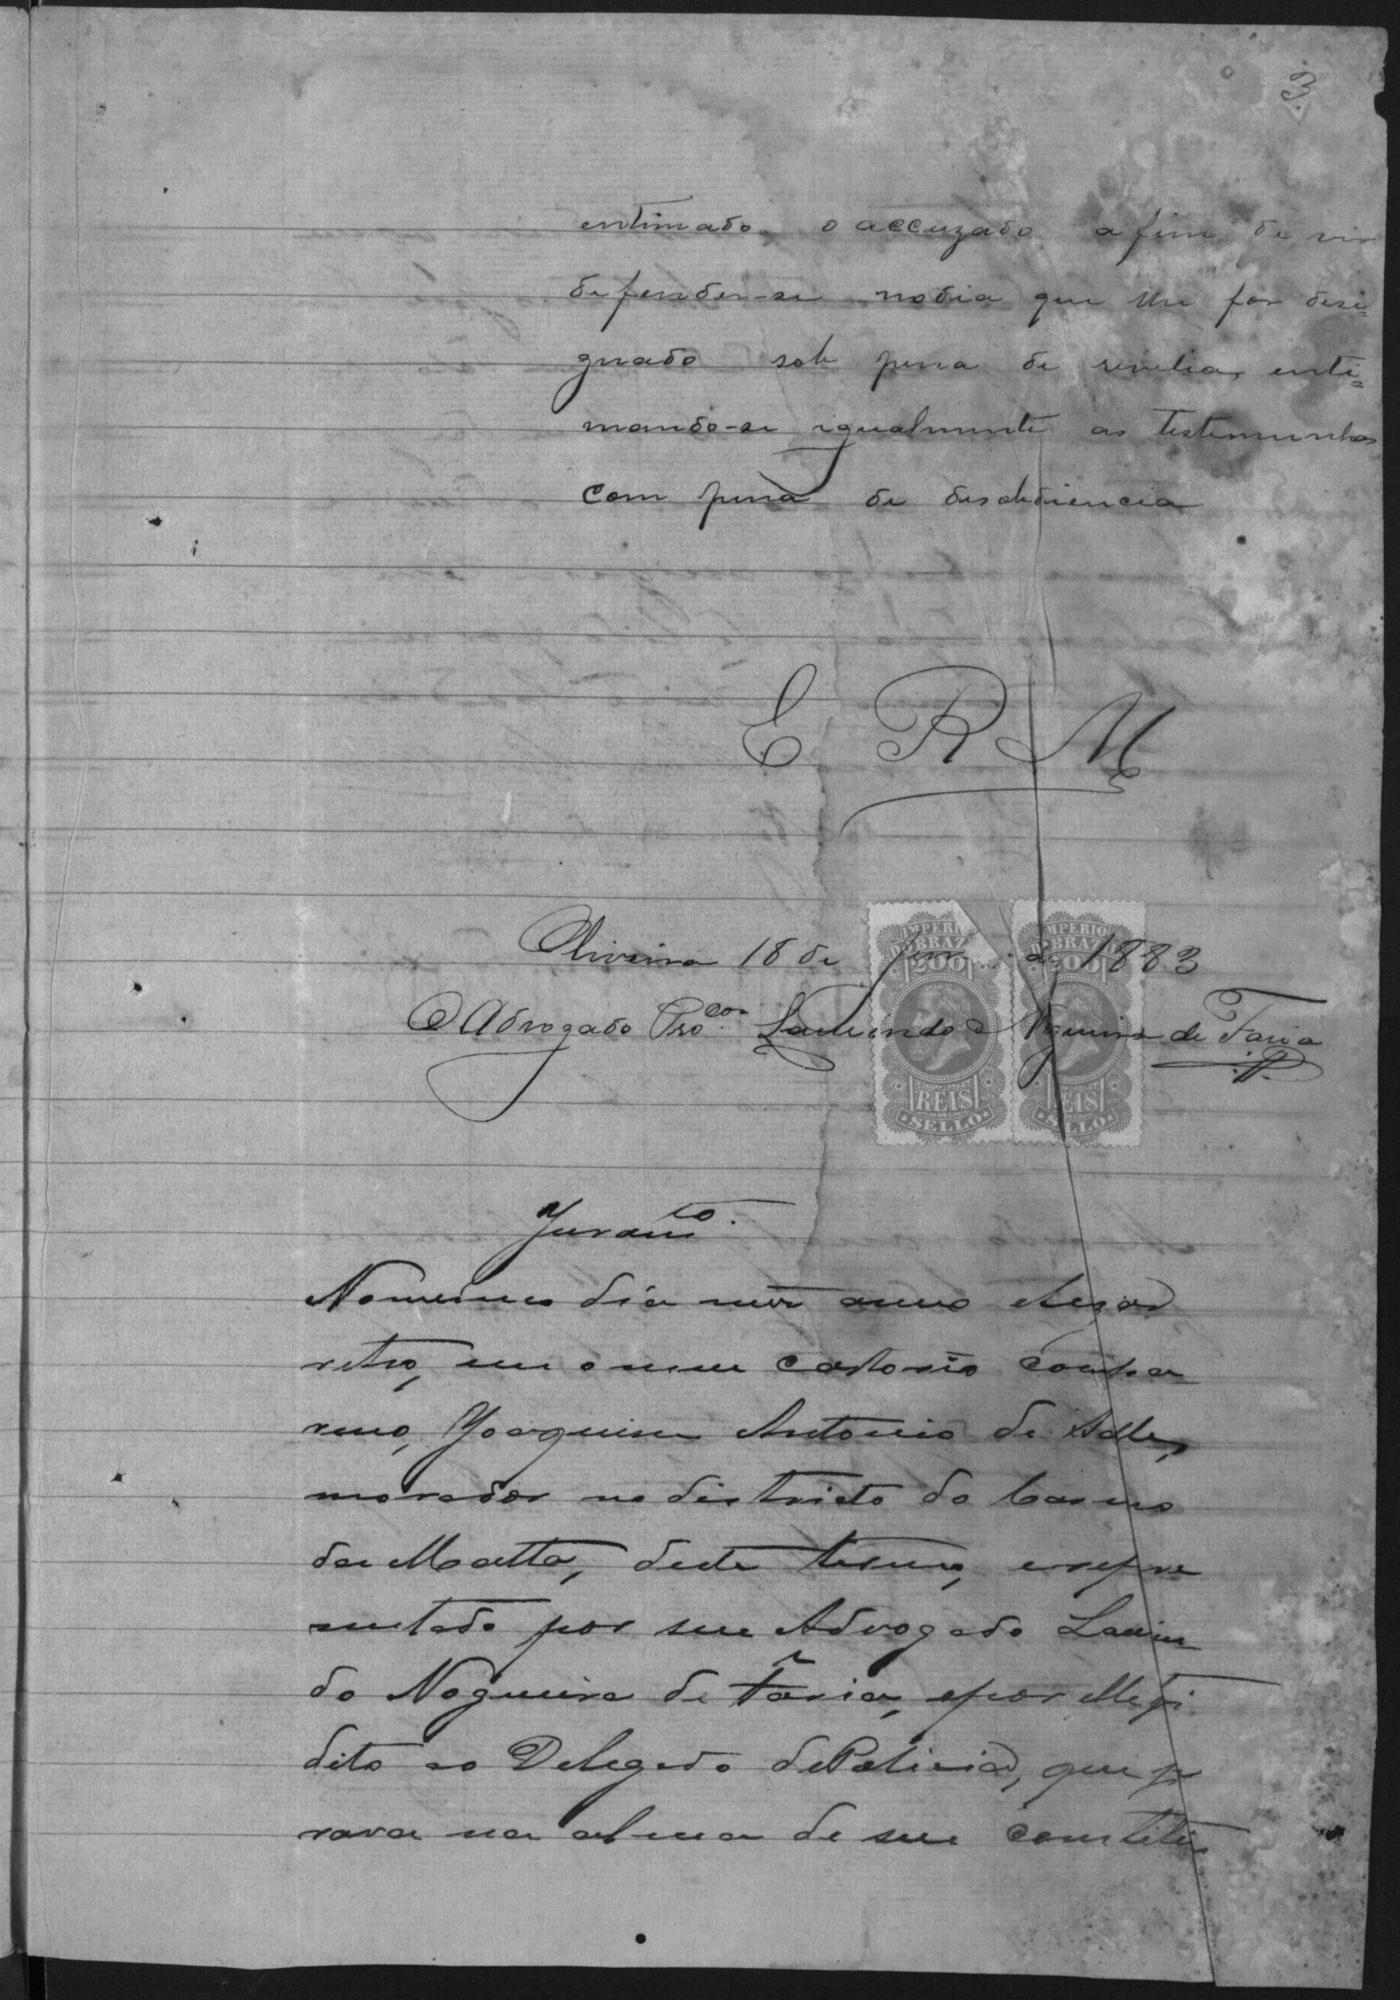 3
entimado o accuzado afim de vir
defender-se nodia que lhe for desi=
gnado sob pena de revelia, enti=
mando-se igualmente as testemunhas
com pena de desobediencia
E R M
Oliveira 18 de Jun de 1883
O Advogado Pro.cor Laurindo Nogueira de Faria
IMPERIO DO BRAZIL 200 REIS SELLO
IMPERIO DO BRAZIL 200 REIS SELLO
Juram.to
Nomesmo dia mez anno
retro, em o meu cartorio compa
receo, Joaquim Antonio de
morador no districto do Carmo
da Matta, deste termo, erepre
sentado por seu Advogado Laurin
do Nogueira de Faria, e por elle foi
dito ao Delegado de Policia, que ju
rava na alma de seu constitu